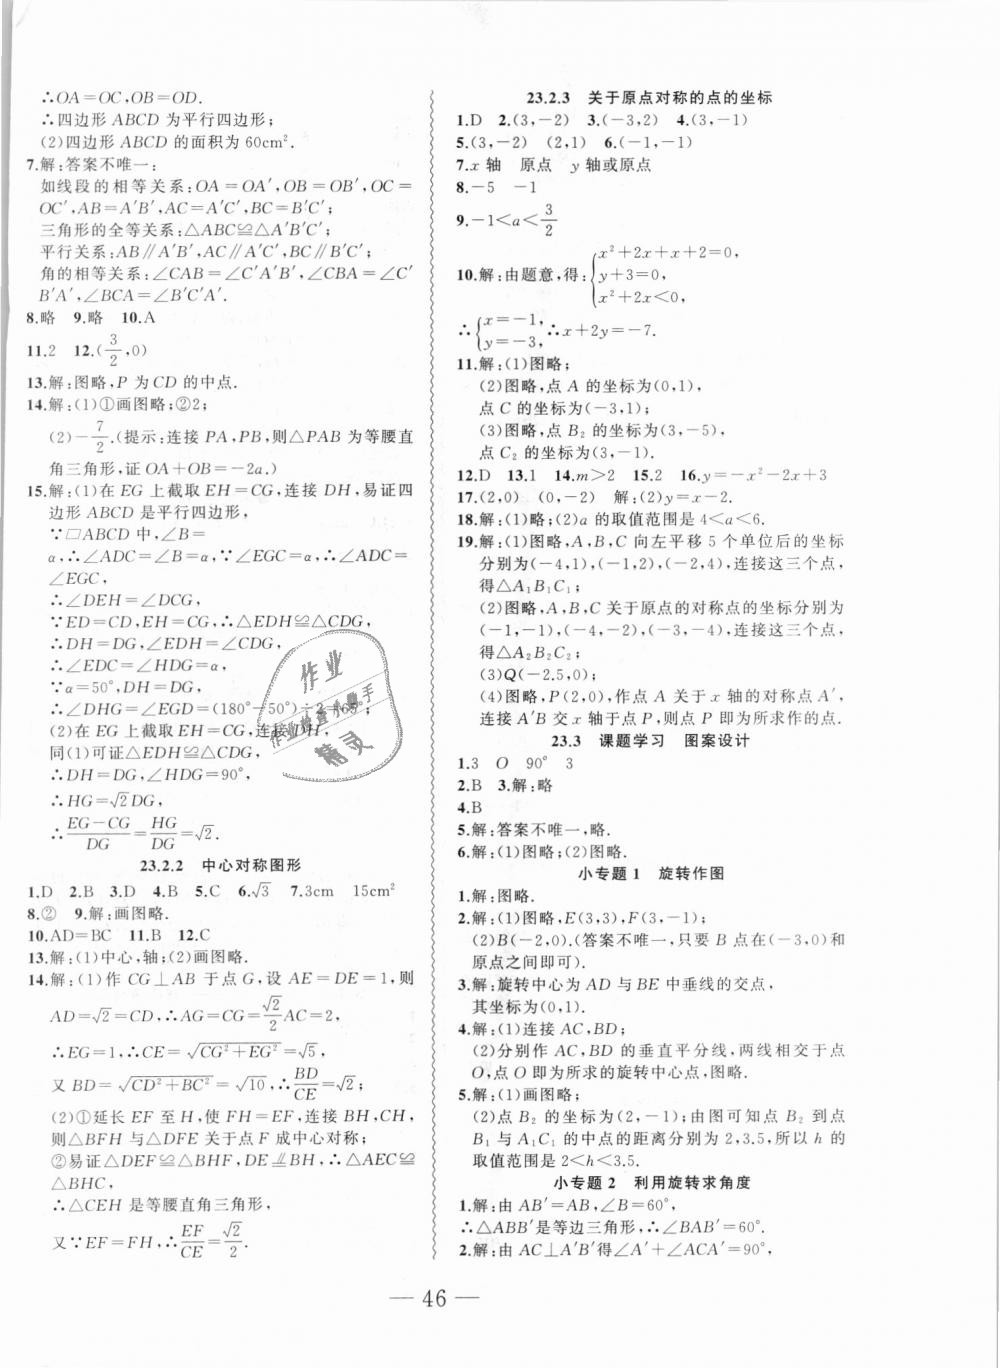 ∴OA=OC,OB=OD.
∴四边形 ABCD 为平行四边形；
(2)四边形 ABCD 的面积为 60cm².
7.解:答案不唯一:
如线段的相等关系:OA=OA′,OB=OB′,OC=
OC′,AB=A′B′,AC=A′C′,BC=B′C′;
三角形的全等关系:△ABC≌△A′B′C′;
平行关系:AB∥A′B′,AC∥A′C′,BC∥B′C′;
角的相等关系:∠CAB=∠C′A′B′,∠CBA=∠C′
B′A′,∠BCA=∠B′C′A′.
8.略 9.略 10.A
11.2 12.(3/2,0)
13.解:图略,P 为 CD 的中点.
14.解:(1)①画图略;②2;
(2)-7/2.(提示:连接 PA,PB,则△PAB 为等腰直
角三角形,证 OA+OB=-2a.)
15.解:(1)在 EG 上截取 EH=CG,连接 DH,易证四
边形 ABCD 是平行四边形,
∵□ABCD 中,∠B=
α,∴∠ADC=∠B=α,∵∠EGC=α,∴∠ADC=
∠EGC,
∴∠DEH=∠DCG,
∵ED=CD,EH=CG,∴△EDH≌△CDG,
∴DH=DG,∠EDH=∠CDG,
∴∠EDC=∠HDG=α,
∵α=50°,DH=DG,
∴∠DHG=∠EGD=(180°-50°)÷2=65°;
(2)在 EG 上截取 EH=CG,连接 DH,
同(1)可证△EDH≌△CDG,
∴DH=DG,∠HDG=90°,
∴HG=√2DG,
∴(EG-CG)/DG=HG/DG=√2.
23.2.2 中心对称图形
1.D 2.B 3.D 4.B 5.C 6.√3 7.3cm 15cm²
8.② 9.解:画图略.
10.AD=BC 11.B 12.C
13.解:(1)中心,轴;(2)画图略.
14.解:(1)作 CG⊥AB 于点 G,设 AE=DE=1,则
AD=√2=CD,∴AG=CG=√2/2AC=2,
∴EG=1,∴CE=√(CG²+EG²)=√5,
又 BD=√(CD²+BC²)=√10,∴BD/CE=√2;
(2)①延长 EF 至 H,使 FH=EF,连接 BH,CH,
则△BFH 与△DFE 关于点 F 成中心对称;
②易证△DEF≌△BHF,DE⫽BH,∴△AEC≌
△BHC,
∴△CEH 是等腰直角三角形,
又∵EF=FH,∴EF/CE=√2/2.
23.2.3 关于原点对称的点的坐标
1.D 2.(3,-2) 3.(-3,2) 4.(3,-1)
5.(3,-2) (2,1) 6.(-1,-1)
7.x 轴 原点 y 轴或原点
8.-5 -1
9.-1<a<3/2
10.解:由题意,得:{x²+2x+x+2=0,
y+3=0,
x²+2x<0,
∴{x=-1,
y=-3,∴x+2y=-7.
11.解:(1)图略;
(2)图略,点 A 的坐标为(0,1),
点 C 的坐标为(-3,1);
(3)图略,点 B₂ 的坐标为(3,-5),
点 C₂ 的坐标为(3,-1).
12.D 13.1 14.m>2 15.2 16.y=-x²-2x+3
17.(2,0) (0,-2) 解:(2)y=x-2.
18.解:(1)略;(2)a 的取值范围是 4<a<6.
19.解:(1)图略,A,B,C 向左平移 5 个单位后的坐标
分别为(-4,1),(-1,2),(-2,4),连接这三个点,
得△A₁B₁C₁;
(2)图略,A,B,C 关于原点的对称点的坐标分别为
(-1,-1),(-4,-2),(-3,-4),连接这三个点,
得△A₂B₂C₂;
(3)Q(-2.5,0);
(4)图略,P(2,0),作点 A 关于 x 轴的对称点 A′,
连接 A′B 交 x 轴于点 P,则点 P 即为所求作的点.
23.3 课题学习 图案设计
1.3 O 90° 3
2.B 3.解:略
4.B
5.解:答案不唯一,略.
6.解:(1)图略;(2)图略.
小专题 1 旋转作图
1.解:图略.
2.解:(1)图略,E(3,3),F(3,-1);
(2)B(-2,0).(答案不唯一,只要 B 点在(-3,0)和
原点之间即可).
3.解:旋转中心为 AD 与 BE 中垂线的交点,
其坐标为(0,1).
4.解:(1)连接 AC,BD;
(2)分别作 AC,BD 的垂直平分线,两线相交于点
O,点 O 即为所求的旋转中心点.
5.解:(1)画图略;
(2)点 B₂ 的坐标为(2,-1);由图可知点 B₂ 到点
B₁ 与 A₁C₁ 的中点的距离分别为 2,3.5,所以 h 的
取值范围是 2<h<3.5.
小专题 2 利用旋转求角度
1.解:由 AB′=AB,∠B=60°,
∴△ABB′是等边三角形,∴∠BAB′=60°.
2.解:由 AC⊥A′B′得∠A′+∠ACA′=90°,
作业
作业检查小帮手
精灵
— 46 —